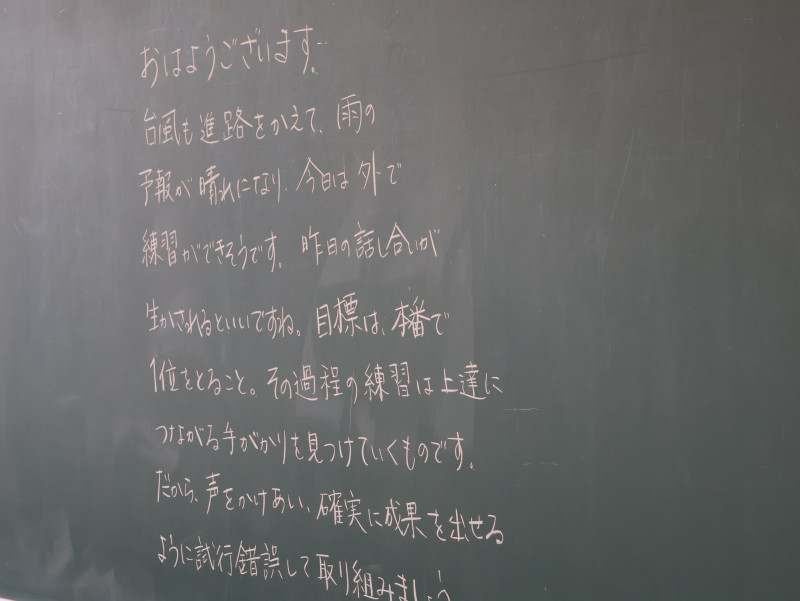 おはようございます。
台風も進路をかえて、雨の
予報が晴れになり、今日は外で
練習ができそうです。昨日の話し合いが
生かされるといいですね。目標は、本番で
1位をとること。その過程の練習は上達に
つながる手がかりを見つけていくものです。
だから、声をかけあい、確実に成果を出せる
ように試行錯誤して取り組みましょう